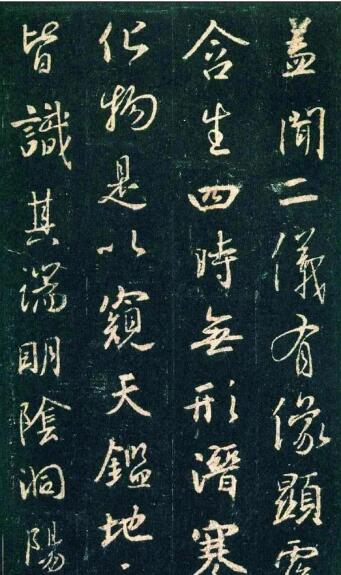 盖聞二儀有像顯
含生四時無形潛寒
化物是以窺天鑑地
皆識其端明陰洞陽